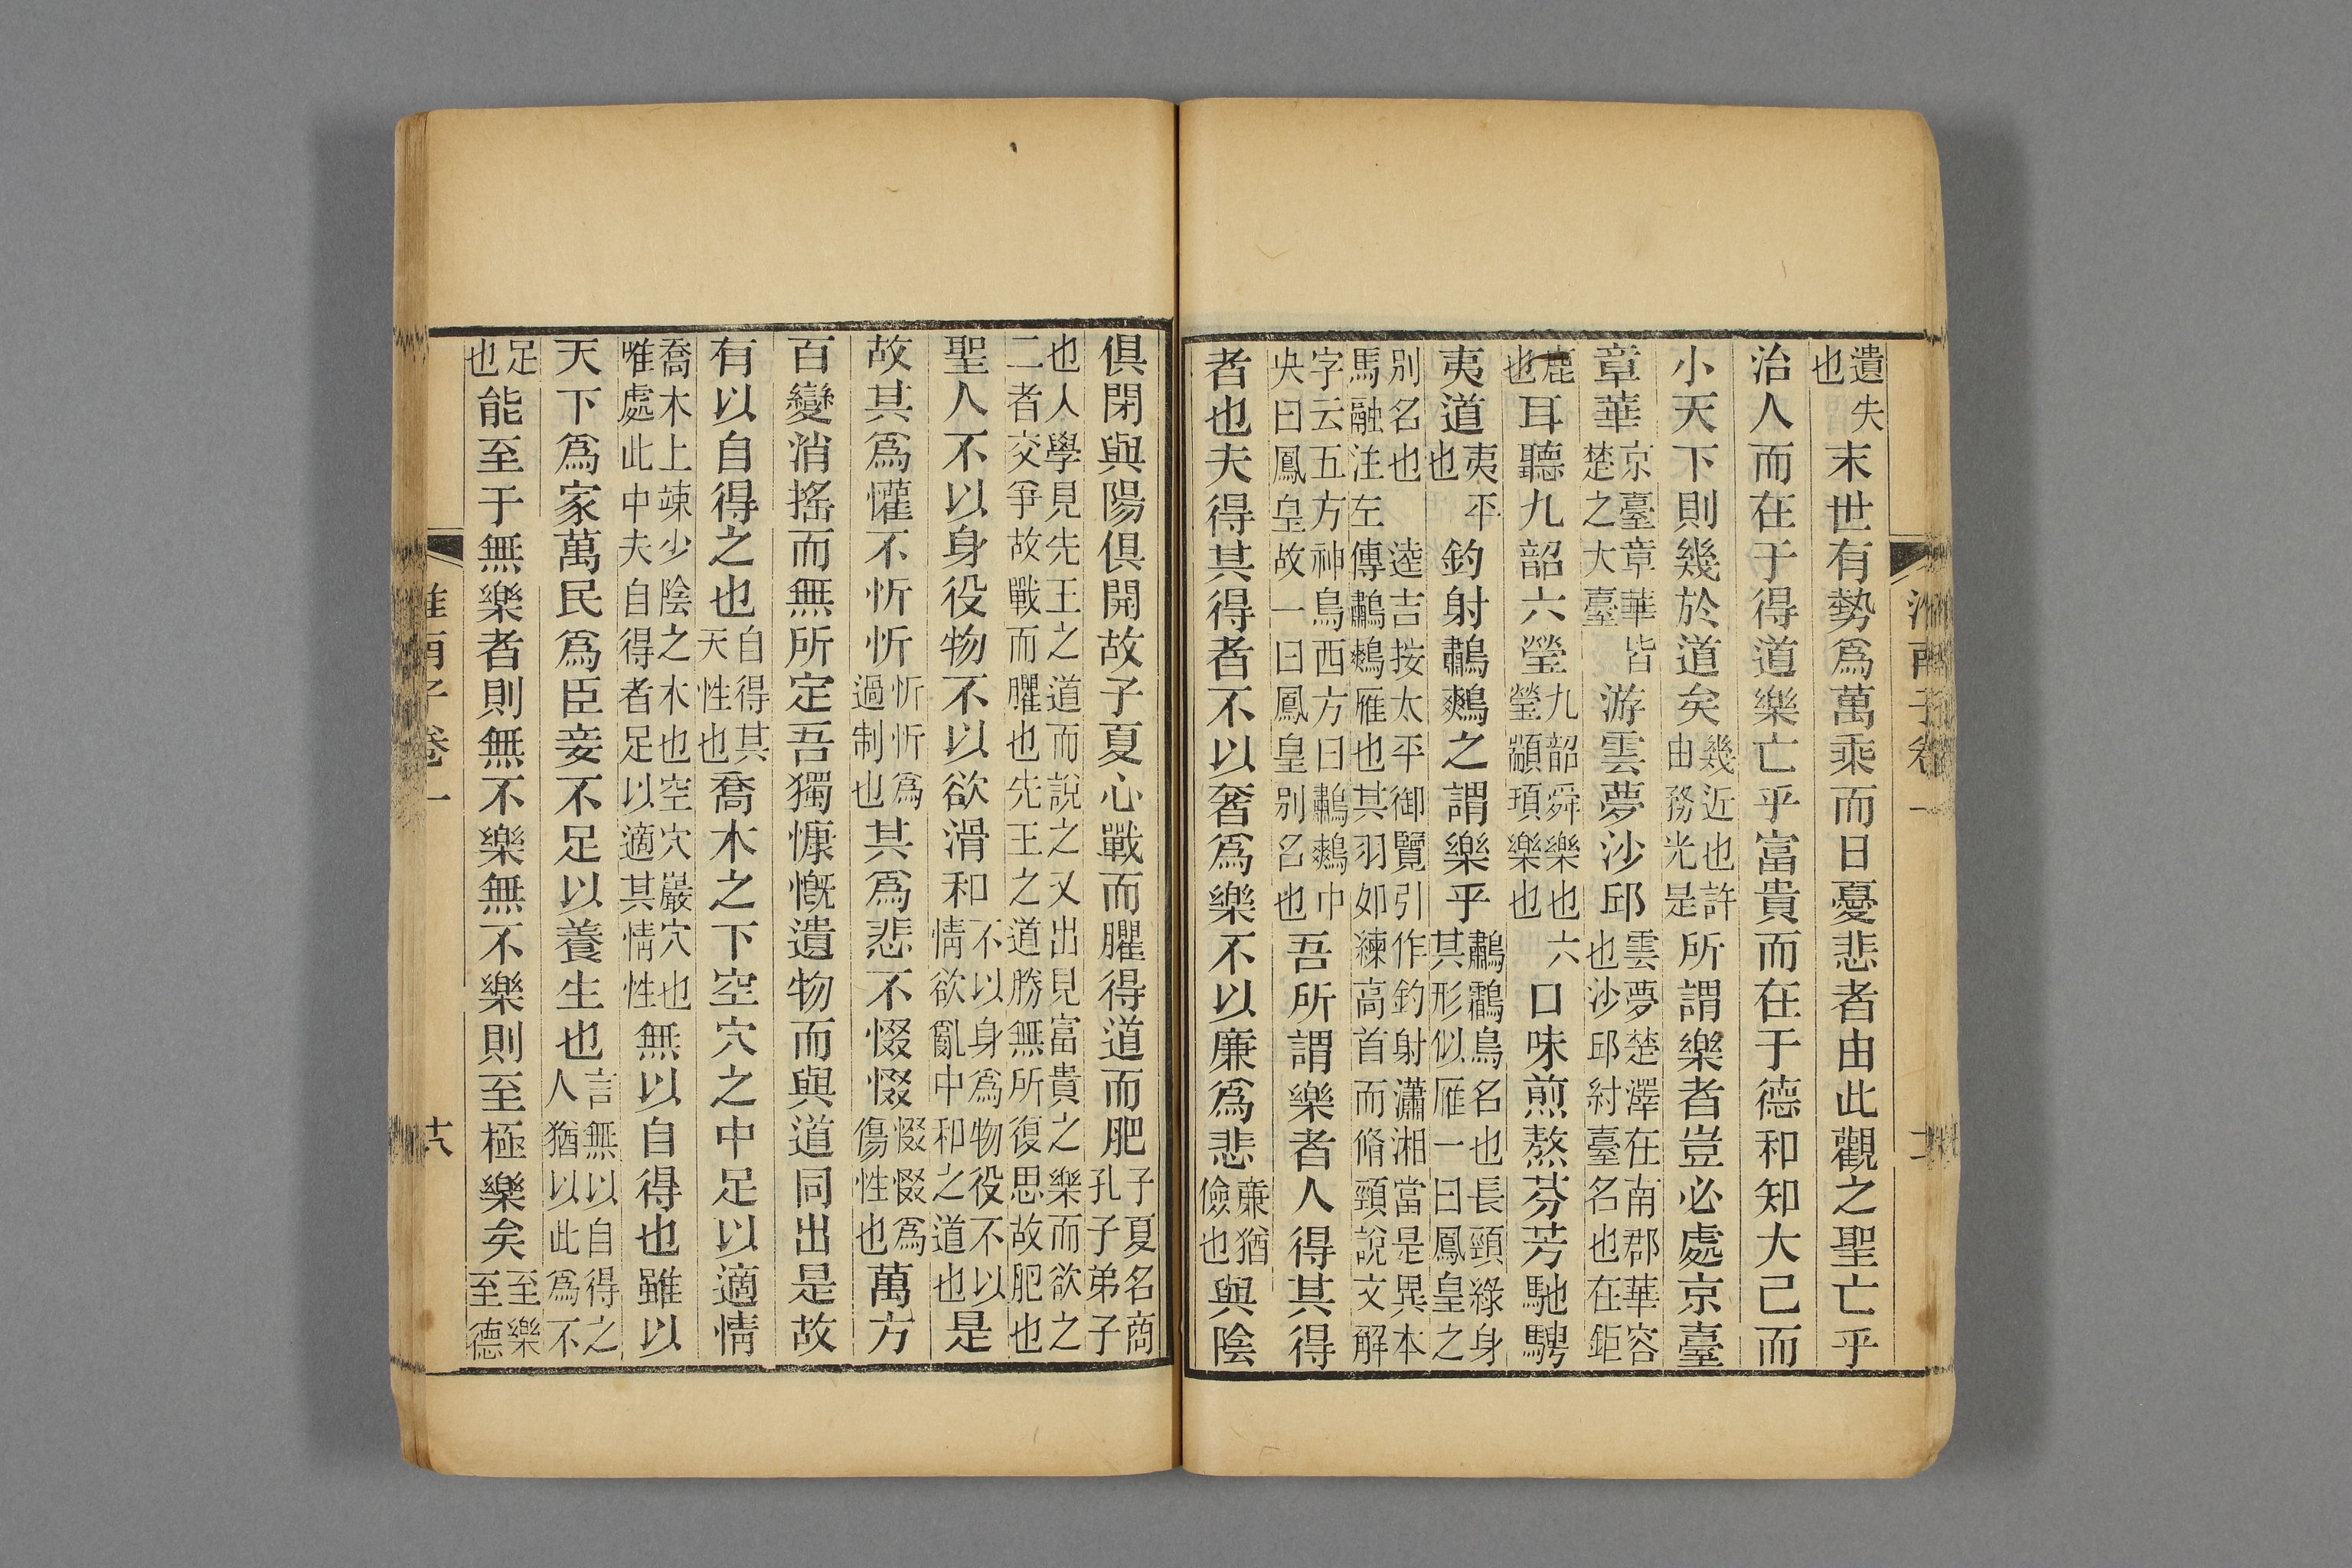 遺失也末世有勢爲萬乘而日憂悲者由此觀之聖亡乎
治人而在于得道樂亡乎富貴而在于德和知大己而
小天下則幾於道矣幾近也許由務光是所謂樂者豈必處京臺
章華京臺章華皆楚之大臺游雲夢沙邱雲夢楚澤在南郡華容也沙邱紂臺名也在鉅
鹿也耳聽九韶六瑩九韶舜樂也六瑩顓頊樂也口味煎熬芬芳馳騁
夷道夷平也釣射鷫鷞之謂樂乎鷫鷞鳥名也長頸綠身其形似雁一曰鳳皇之
別名也 逵吉按太平御覽引作釣射瀟湘當是異本馬融注左傳鷫鷞雁也其羽如練高首而脩頸說文解
字云五方神鳥西方曰鷫鷞中央曰鳳皇故一曰鳳皇別名也吾所謂樂者人得其得
者也夫得其得者不以奢爲樂不以廉爲悲廉猶儉也與陰
俱閉與陽俱開故子夏心戰而臞得道而肥子夏名商孔子弟子
也人學見先王之道而說之又出見富貴之樂而欲之二者交爭故戰而臞也先王之道勝無所復思故肥也
聖人不以身役物不以欲滑和不以身爲物役不以情欲亂中和之道也是
故其爲懽不忻忻忻忻爲過制也其爲悲不惙惙惙惙爲傷性也萬方
百變消搖而無所定吾獨慷慨遺物而與道同出是故
有以自得之也自得其天性也喬木之下空穴之中足以適情
喬木上竦少陰之木也空穴巖穴也唯處此中夫自得者足以適其情性無以自得也雖以
天下爲家萬民爲臣妾不足以養生也言無以自得之人猶以此爲不
足也能至于無樂者則無不樂無不樂則至極樂矣至樂至德
淮南子卷一 十六